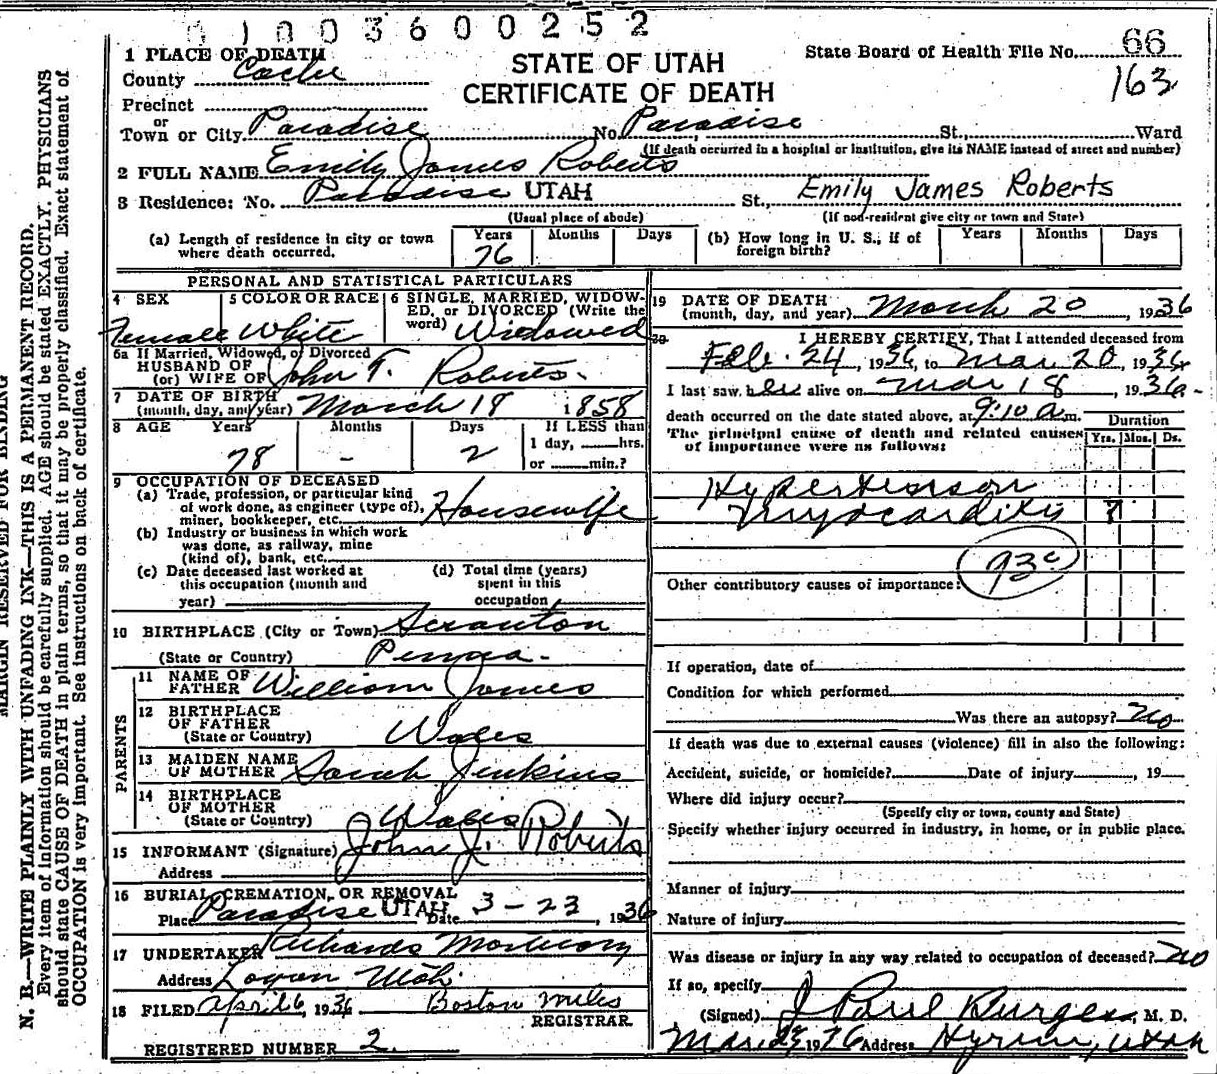 0100360 0252
1 PLACE OF DEATH
County Cache
STATE OF UTAH
CERTIFICATE OF DEATH
State Board of Health File No. 66
163
Precinct
or
Town or City Paradise No. Paradise St., Ward
(If death occurred in a hospital or institution, give its NAME instead of street and number)
2 FULL NAME Emily James Roberts
3 Residence: No. Paradise UTAH St., Emily James Roberts
(Usual place of abode) (If non-resident give city or town and State)
(a) Length of residence in city or town where death occurred. Years 76 Months Days
(b) How long in U. S., if of foreign birth? Years Months Days
PERSONAL AND STATISTICAL PARTICULARS
4 SEX Female
5 COLOR OR RACE White
6 SINGLE, MARRIED, WIDOWED, or DIVORCED (Write the word) Widowed
6a If Married, Widowed, or Divorced
HUSBAND OF
(or) WIFE OF John T. Roberts.
7 DATE OF BIRTH
(month, day, and year) March 18 1858
8 AGE Years 78 Months - Days 2
If LESS than
1 day, hrs.
or min.?
9 OCCUPATION OF DECEASED
(a) Trade, profession, or particular kind
of work done, as engineer (type of),
miner, bookkeeper, etc. Housewife
(b) Industry or business in which work
was done, as railway, mine
(kind of), bank, etc.
(c) Date deceased last worked at
this occupation (month and
year)
(d) Total time (years)
spent in this
occupation
10 BIRTHPLACE (City or Town) Scranton
(State or Country) Penna.
PARENTS
11 NAME OF
FATHER William James
12 BIRTHPLACE
OF FATHER
(State or Country) Wales
13 MAIDEN NAME
OF MOTHER Sarah Jenkins
14 BIRTHPLACE
OF MOTHER
(State or Country) Wales
15 INFORMANT (Signature) John J. Roberts
Address
16 BURIAL, CREMATION, OR REMOVAL
Place Paradise UTAH Date 3-23, 1936
17 UNDERTAKER Richards Mortuary
Address Logan Utah.
18 FILED April 6, 1936 Boston Miles
REGISTRAR
REGISTERED NUMBER 2.
19 DATE OF DEATH
(month, day, and year) March 20, 1936
20 I HEREBY CERTIFY, That I attended deceased from
Feb. 24, 1936, to Mar 20, 1936
I last saw her alive on Mar 18, 1936
death occurred on the date stated above, at 9:10 a m.
The principal cause of death and related causes
of importance were as follows:
Duration
Yrs. Mos. Ds.
Hypertension
Myocarditis ?
93c
Other contributory causes of importance:
If operation, date of
Condition for which performed
Was there an autopsy? No
If death was due to external causes (violence) fill in also the following:
Accident, suicide, or homicide? Date of injury, 19
Where did injury occur?
(Specify city or town, county and State)
Specify whether injury occurred in industry, in home, or in public place.
Manner of injury
Nature of injury
Was disease or injury in any way related to occupation of deceased? No
If so, specify
(Signed) J Paul Burgess, M. D.
1936 Address Hyrum, Utah
MARGIN RESERVED FOR BINDING
N. B.—WRITE PLAINLY WITH UNFADING INK—THIS IS A PERMANENT RECORD.
Every item of information should be carefully supplied. AGE should be stated EXACTLY. PHYSICIANS
should state CAUSE OF DEATH in plain terms, so that it may be properly classified. Exact statement of
OCCUPATION is very important. See instructions on back of certificate.